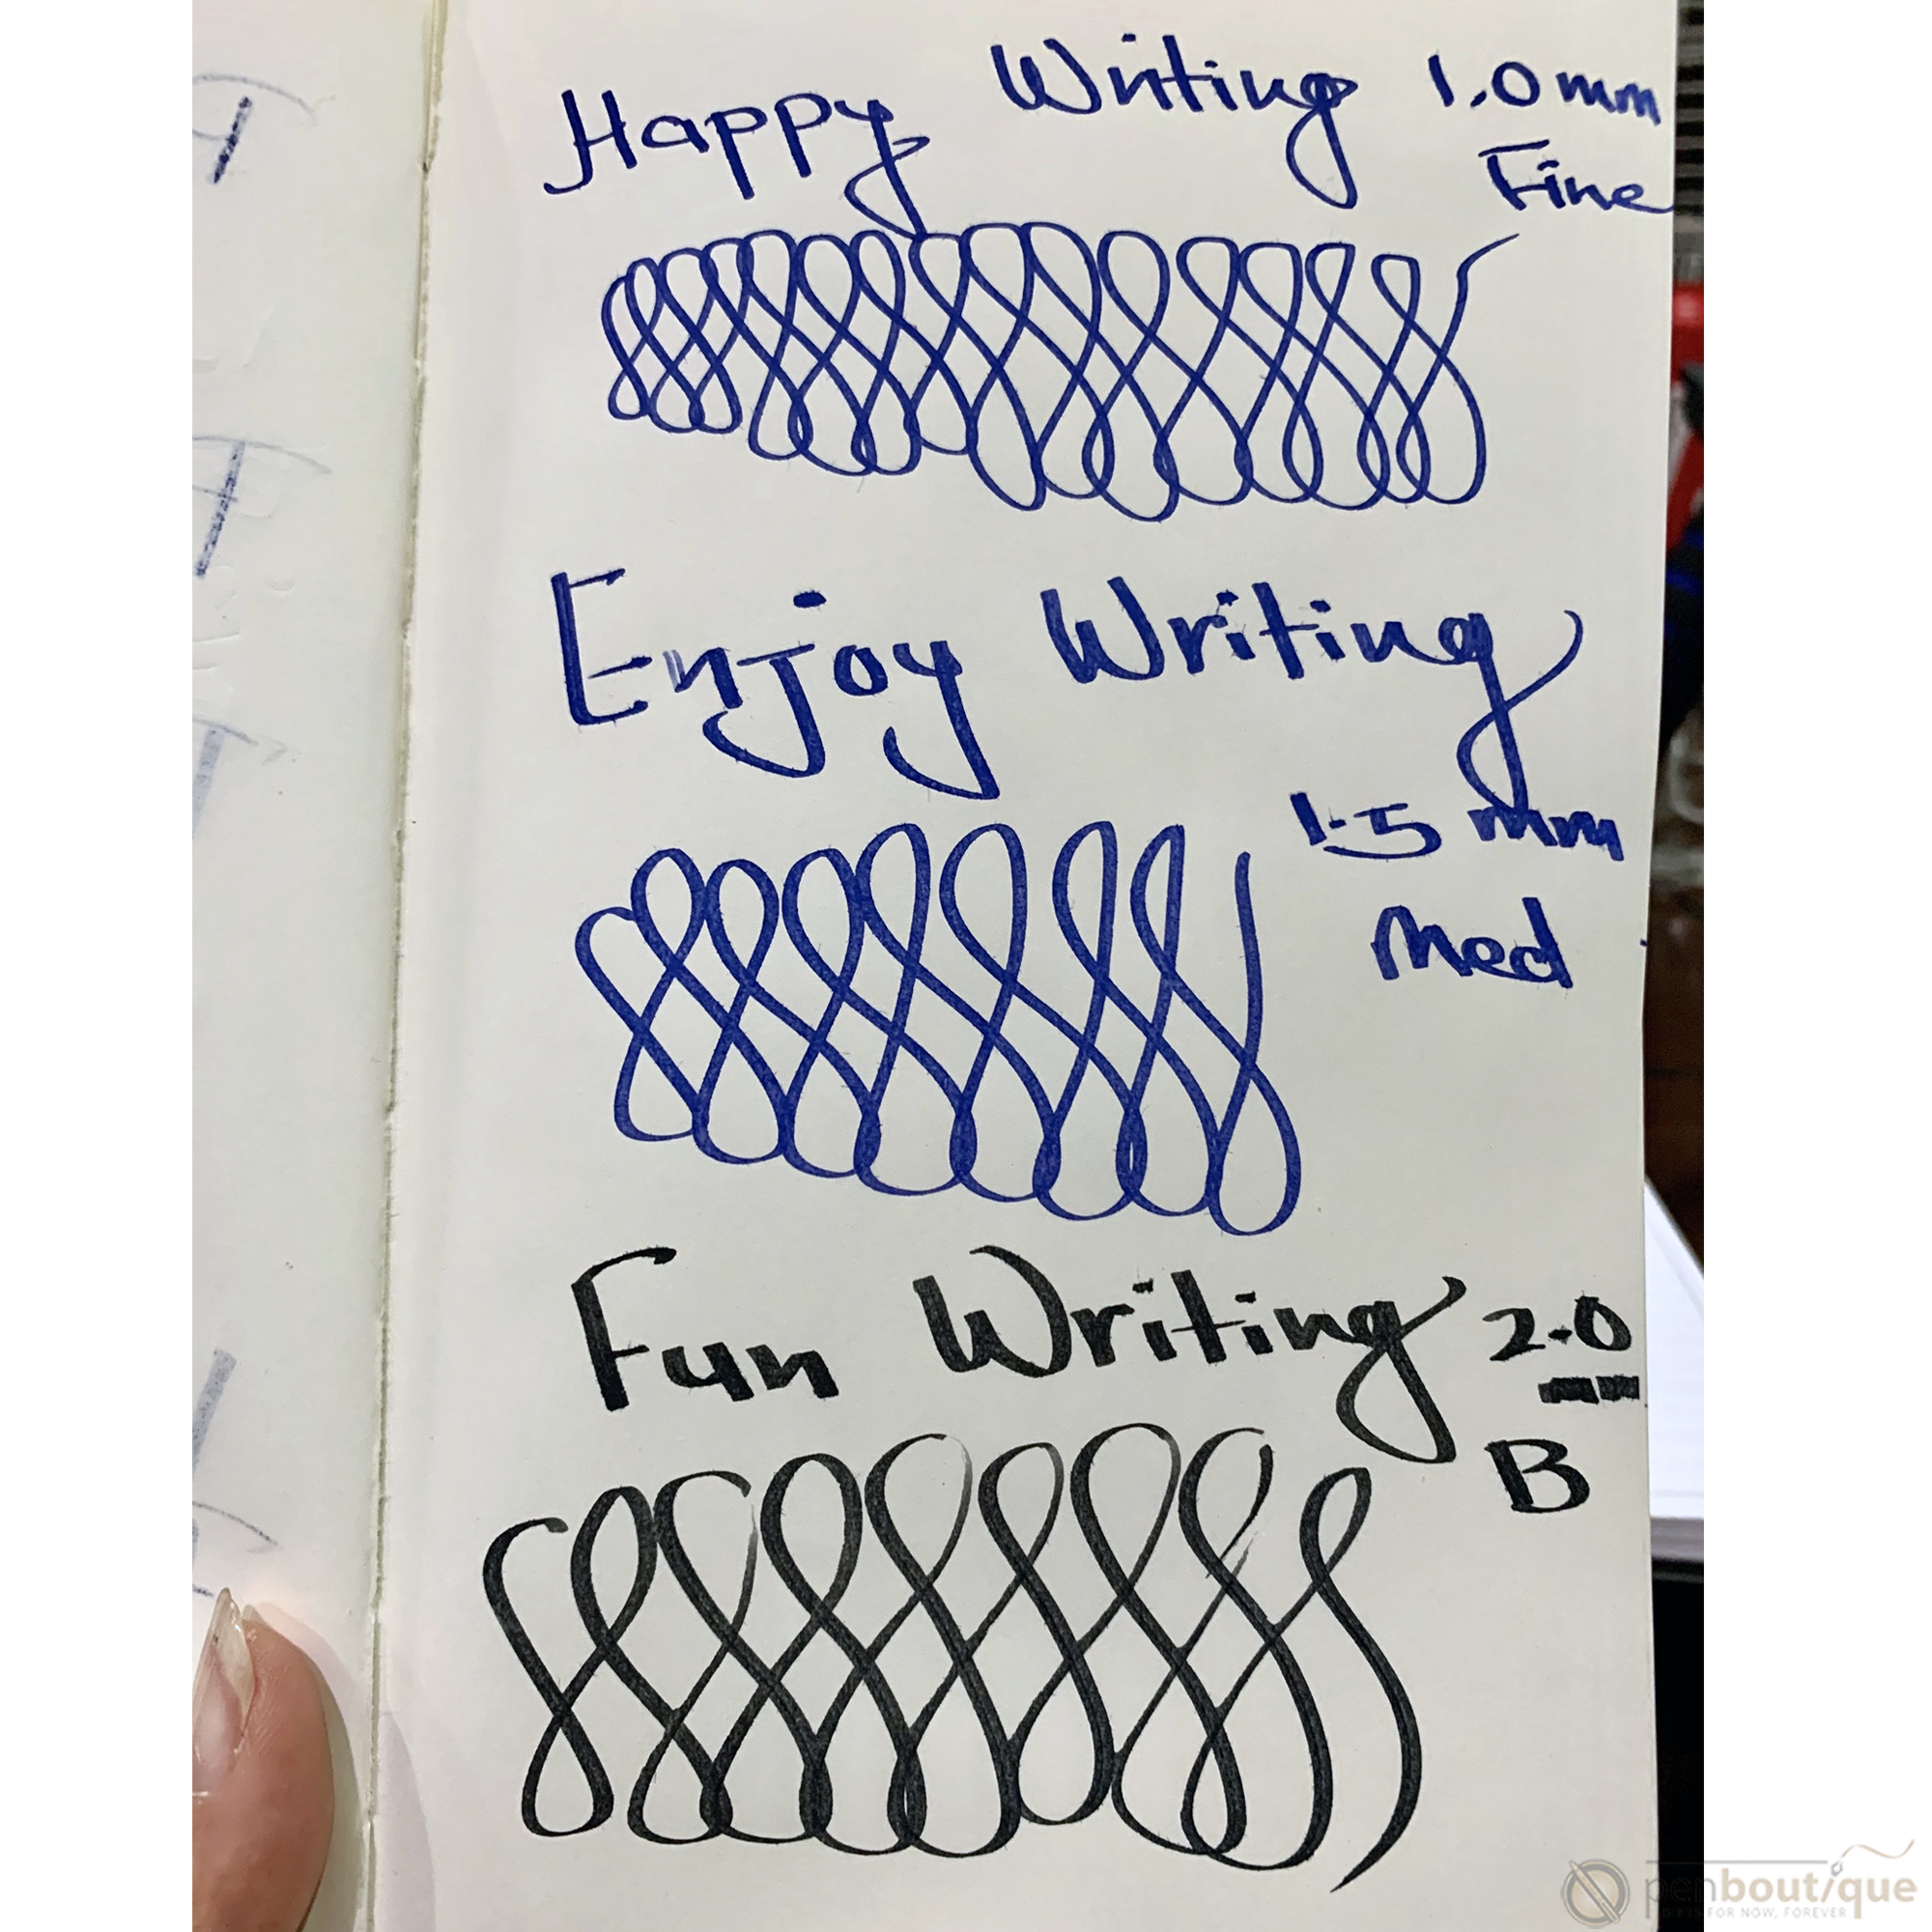 Happy Writing 1.0 mm
Fine
Enjoy Writing
1.5 mm
Med
Fun Writing 2.0
B
penboutique
FOR NOW, FOREVER